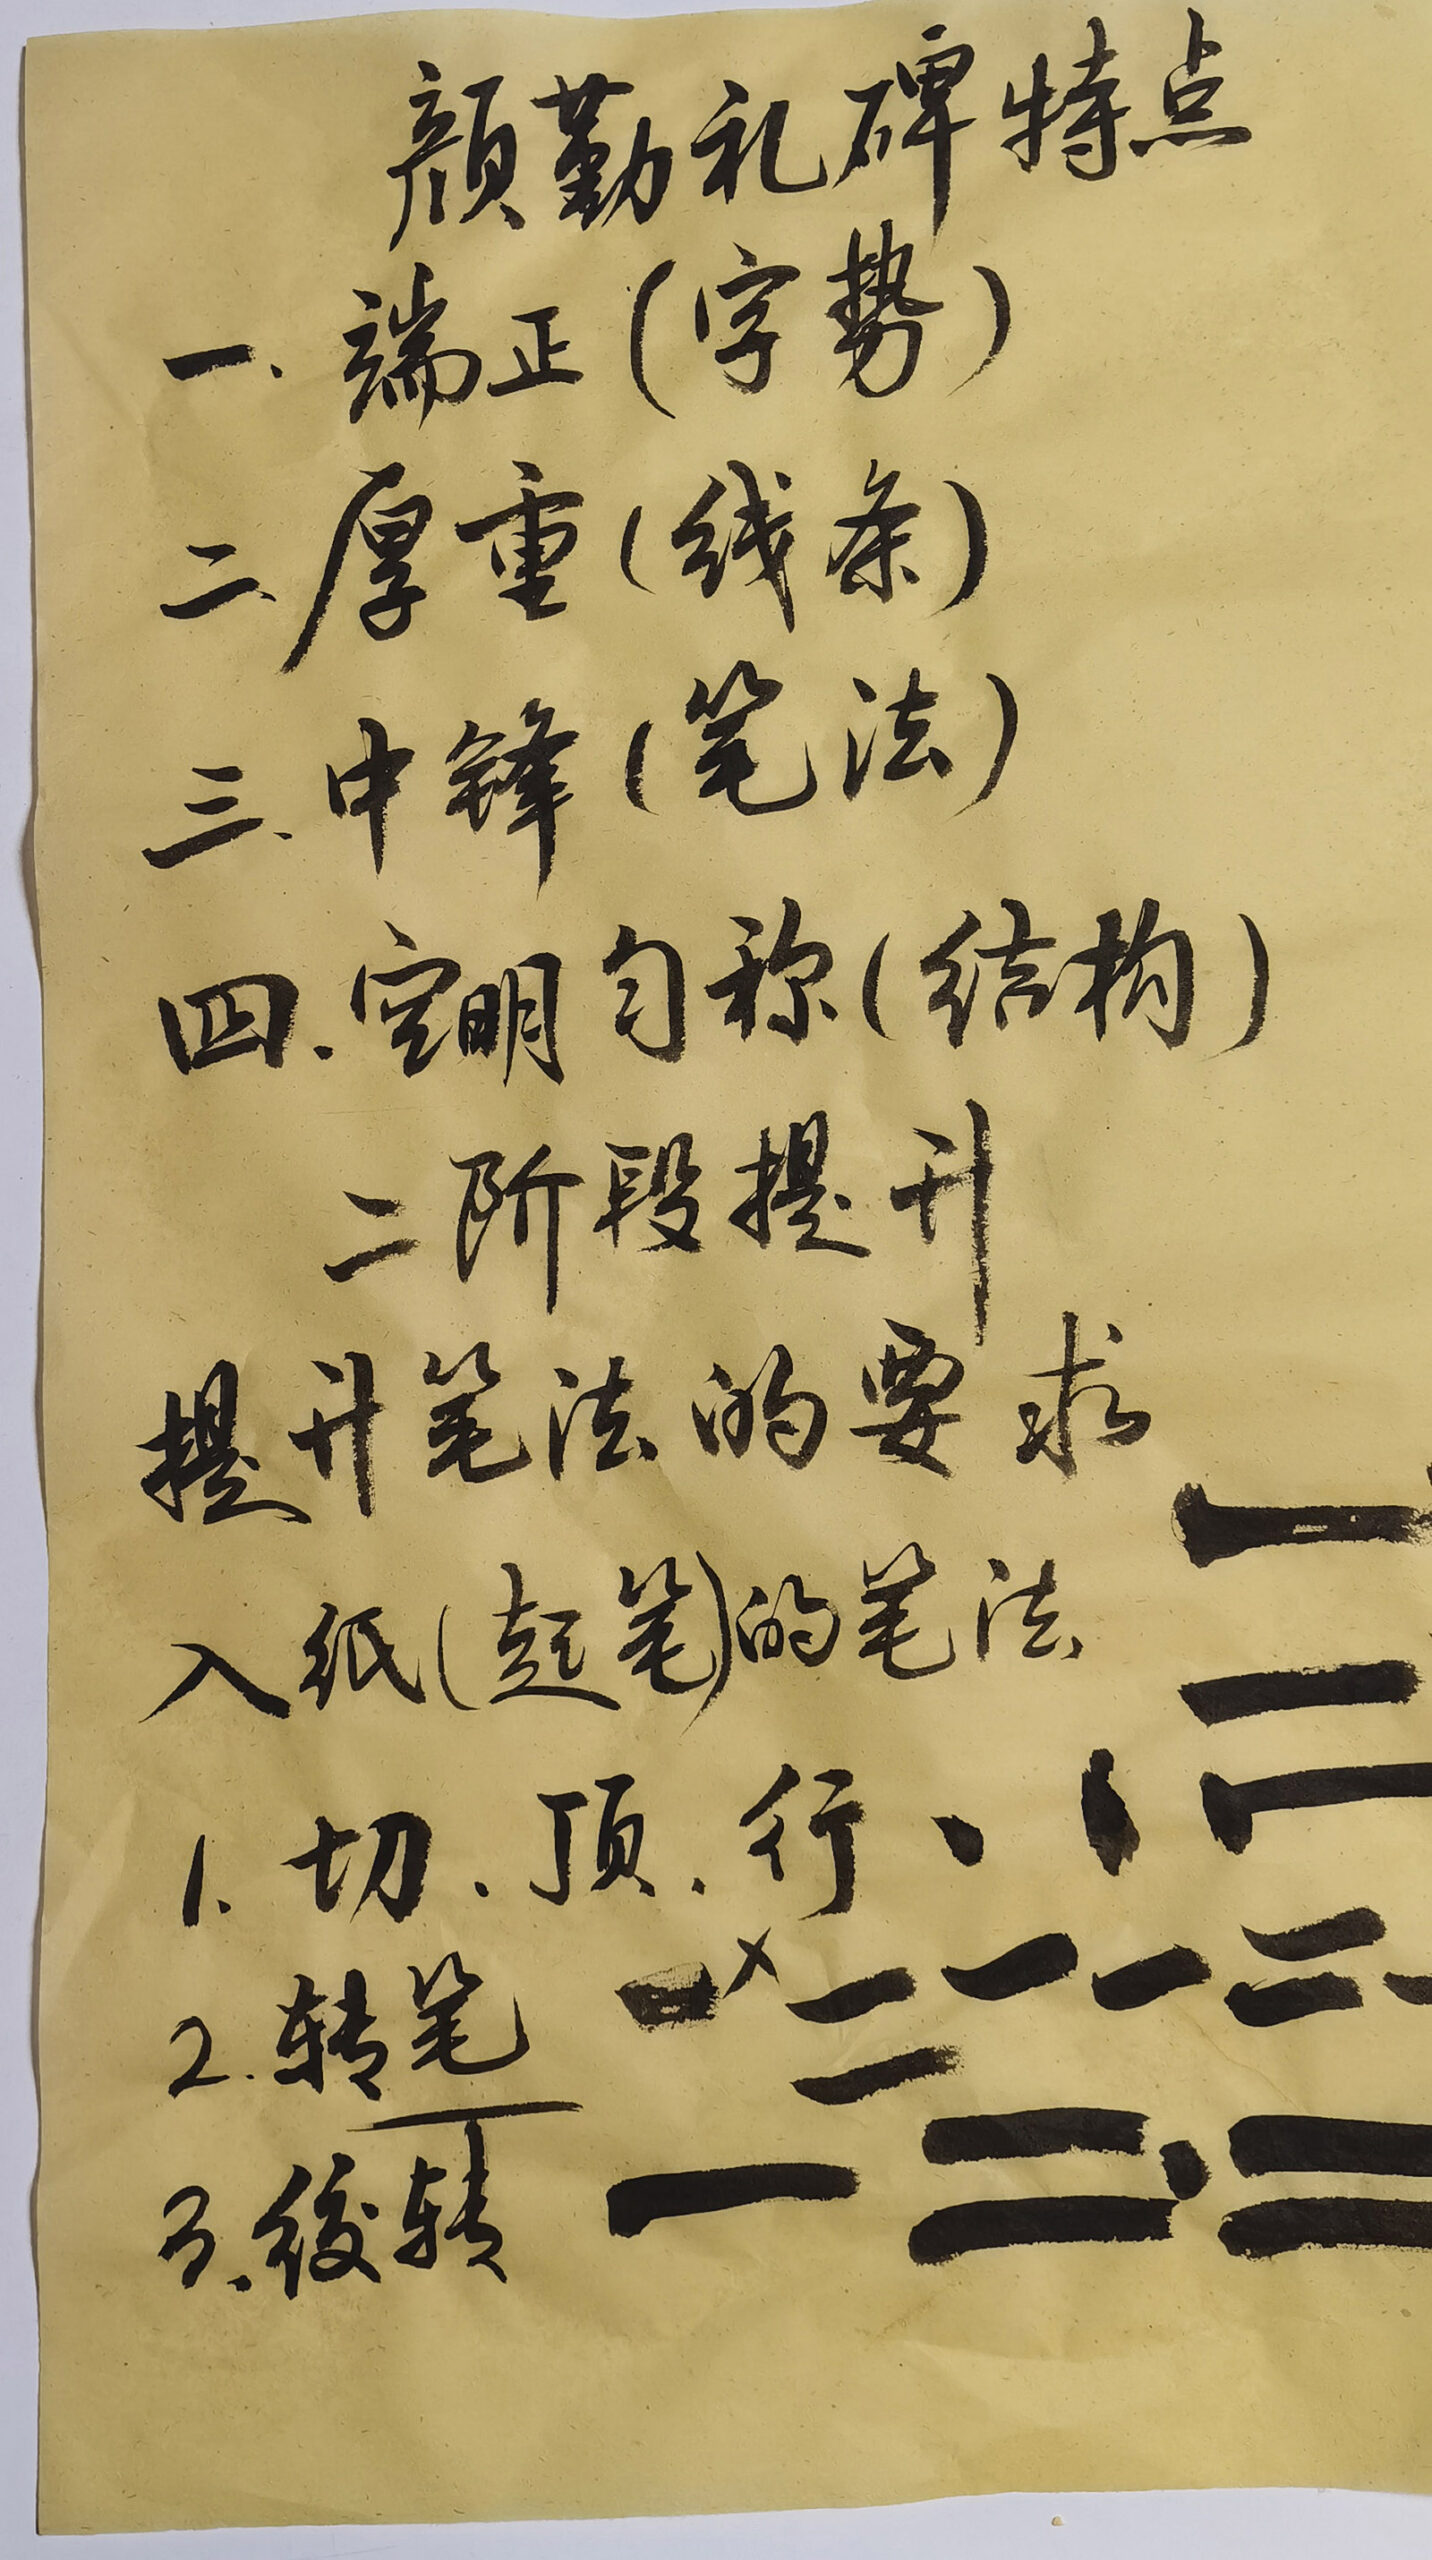 颜勤礼碑特点
一、端正(字势)
二、厚重(线条)
三、中锋(笔法)
四、空明匀称(结构)
二阶段提升
提升笔法的要求
入纸(起笔)的笔法
1. 切.顶.行
2.转笔
3.绞转